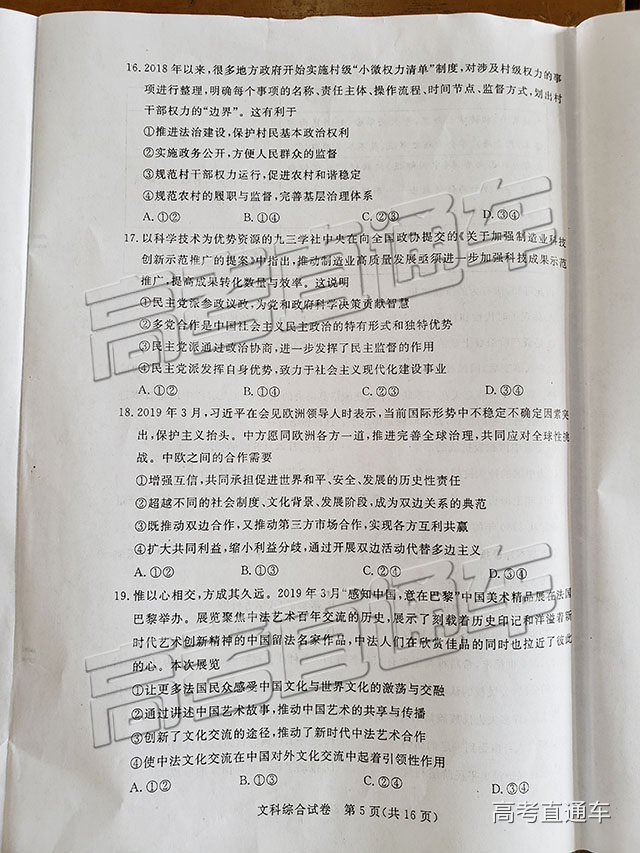 16. 2018年以来,很多地方政府开始实施村级“小微权力清单”制度,对涉及村级权力的事
项进行整理,明确每个事项的名称、责任主体、操作流程、时间节点、监督方式,划出村
干部权力的“边界”。这有利于
①推进法治建设,保护村民基本政治权利
②实施政务公开,方便人民群众的监督
③规范村干部权力运行,促进农村和谐稳定
④规范农村的履职与监督,完善基层治理体系
A. ①② B. ①④ C. ②③ D. ③④
17. 以科学技术为优势资源的九三学社中央在向全国政协提交的《关于加强制造业科技
创新示范推广的提案》中指出,推动制造业高质量发展亟须进一步加强科技成果示范
推广,提高成果转化数量与效率。这说明
①民主党派参政议政,为党和政府科学决策贡献智慧
②多党合作是中国社会主义民主政治的特有形式和独特优势
③民主党派通过政治协商,进一步发挥了民主监督的作用
④民主党派发挥自身优势,致力于社会主义现代化建设事业
A. ①② B. ①④ C. ②③ D. ③④
18. 2019年3月,习近平在会见欧洲领导人时表示,当前国际形势中不稳定不确定因素突
出,保护主义抬头。中方愿同欧洲各方一道,推进完善全球治理,共同应对全球性挑
战。中欧之间的合作需要
①增强互信,共同承担促进世界和平、安全、发展的历史性责任
②超越不同的社会制度、文化背景、发展阶段,成为双边关系的典范
③既推动双边合作,又推动第三方市场合作,实现各方互利共赢
④扩大共同利益,缩小利益分歧,通过开展双边活动代替多边主义
A. ①② B. ①③ C. ②④ D. ③④
19. 惟以心相交,方成其久远。2019年3月“感知中国,意在巴黎”中国美术精品展在法国
巴黎举办。展览聚焦中法艺术百年交流的历史,展示了刻载着历史印记和洋溢着新
时代艺术创新精神的中国留法名家作品,中法人们在欣赏佳品的同时也拉近了彼此
的心。本次展览
①让更多法国民众感受中国文化与世界文化的激荡与交融
②通过讲述中国艺术故事,推动中国艺术的共享与传播
③创新了文化交流的途径,推动了新时代中法艺术合作
④使中法文化交流在中国对外文化交流中起着引领性作用
A. ①② B. ①③ C. ②④ D. ③④
文科综合试卷 第5页(共16页)
高考直通车
高考直通车
高考直通车